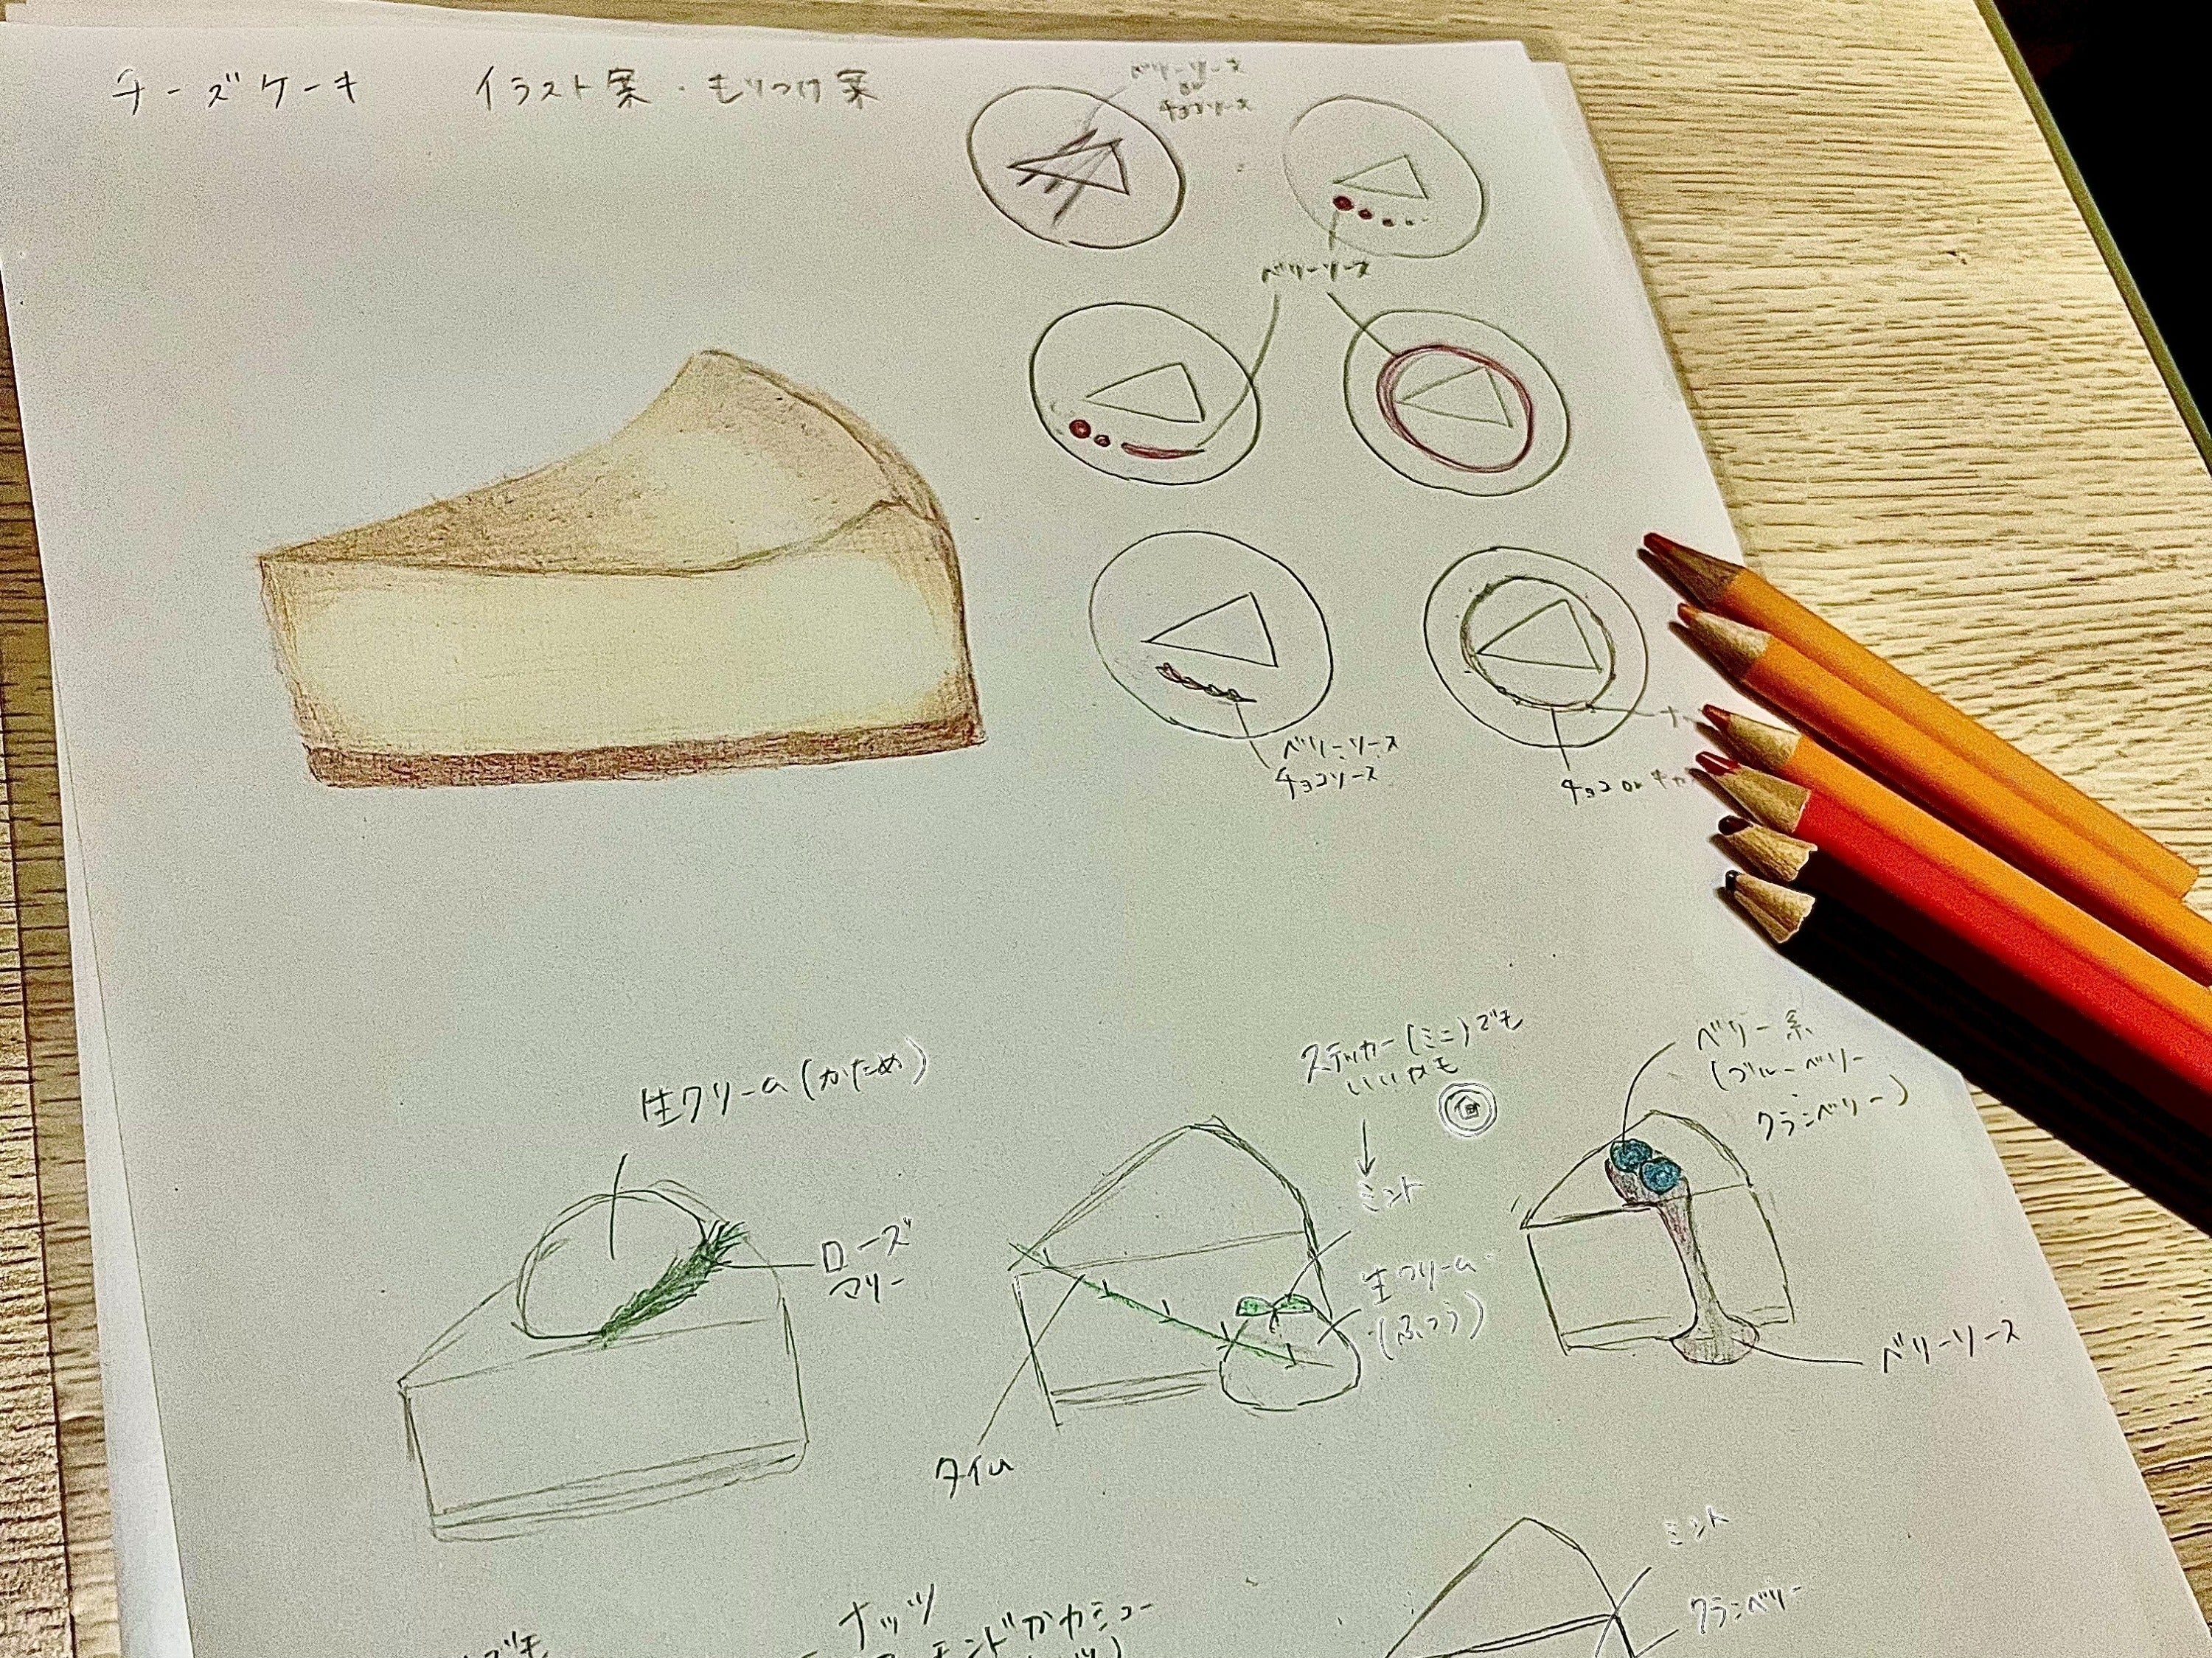 チーズケーキ イラスト案・もりつけ案
ベリーソース
or
チョコソース
ベリーソース
ベリーソース
チョコソース
チョコ or
生クリーム(かため)
ローズ
マリー
ステッカー(ミニ)でも
いいかも
ミント
生クリーム
(ふつう)
タイム
ベリー系
(ブルーベリー
クランベリー)
ベリーソース
ナッツ
ミント
クランベリー